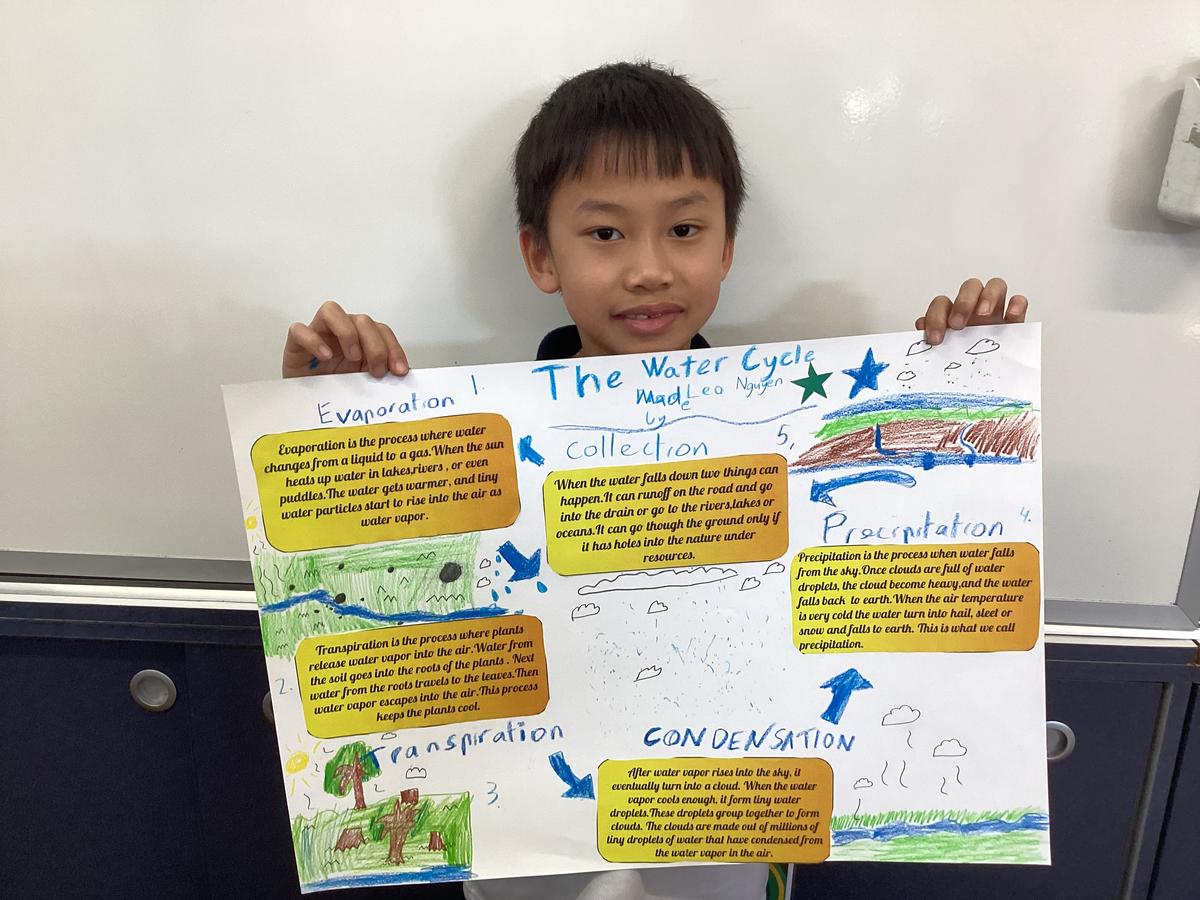 The Water Cycle
Made Leo Nguyen
by
1.
Evaporation
Evaporation is the process where water
changes from a liquid to a gas.When the sun
heats up water in lakes,rivers , or even
puddles.The water gets warmer, and tiny
water particles start to rise into the air as
water vapor.
2.
Transpiration is the process where plants
release water vapor into the air.Water from
the soil goes into the roots of the plants . Next
water from the roots travels to the leaves.Then
water vapor escapes into the air.This process
keeps the plants cool.
Transpiration
3.
CONDENSATION
After water vapor rises into the sky, it
eventually turn into a cloud. When the water
vapor cools enough, it form tiny water
droplets.These droplets group together to form
clouds. The clouds are made out of millions of
tiny droplets of water that have condensed from
the water vapor in the air.
4.
Precipitation
Precipitation is the process when water falls
from the sky.Once clouds are full of water
droplets, the cloud become heavy,and the water
falls back to earth.When the air temperature
is very cold the water turn into hail, sleet or
snow and falls to earth. This is what we call
precipitation.
5,
collection
When the water falls down two things can
happen.It can runoff on the road and go
into the drain or go to the rivers,lakes or
oceans.It can go though the ground only if
it has holes into the nature under
resources.